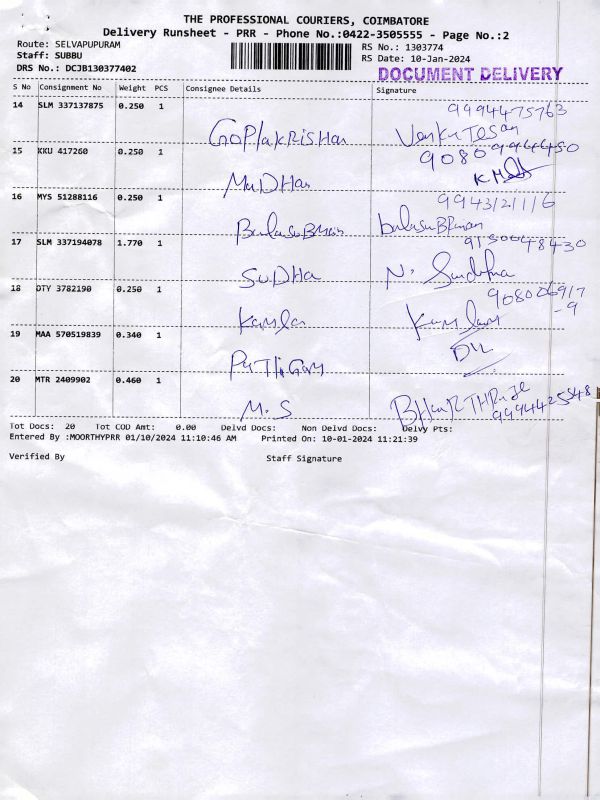 THE PROFESSIONAL COURIERS, COIMBATORE
Delivery Runsheet - PRR - Phone No.:0422-3505555 - Page No.:2
Route: SELVAPUPURAM
RS No.: 1303774
Staff: SUBBU
RS Date: 10-Jan-2024
DRS No.: DCJB130377402
DOCUMENT DELIVERY
S No Consignment No Weight PCS Consignee Details Signature
14 SLM 337137875 0.250 1
9994475763
GoPlakRisHan
VenkaTesan
15 KKU 417260 0.250 1
MuDHan
16 MYS 51288116 0.250 1
9943121116
17 SLM 337194078 1.770 1
SuDHa
N.
18 DTY 3782190 0.250 1
Kamla
19 MAA 570519839 0.340 1
20 MTR 2409902 0.460 1
M.S
9994425548
Tot Docs: 20 Tot COD Amt: 0.00 Delvd Docs: Non Delvd Docs: Delvy Pts:
Entered By :MOORTHYPRR 01/10/2024 11:10:46 AM Printed On: 10-01-2024 11:21:39
Verified By Staff Signature